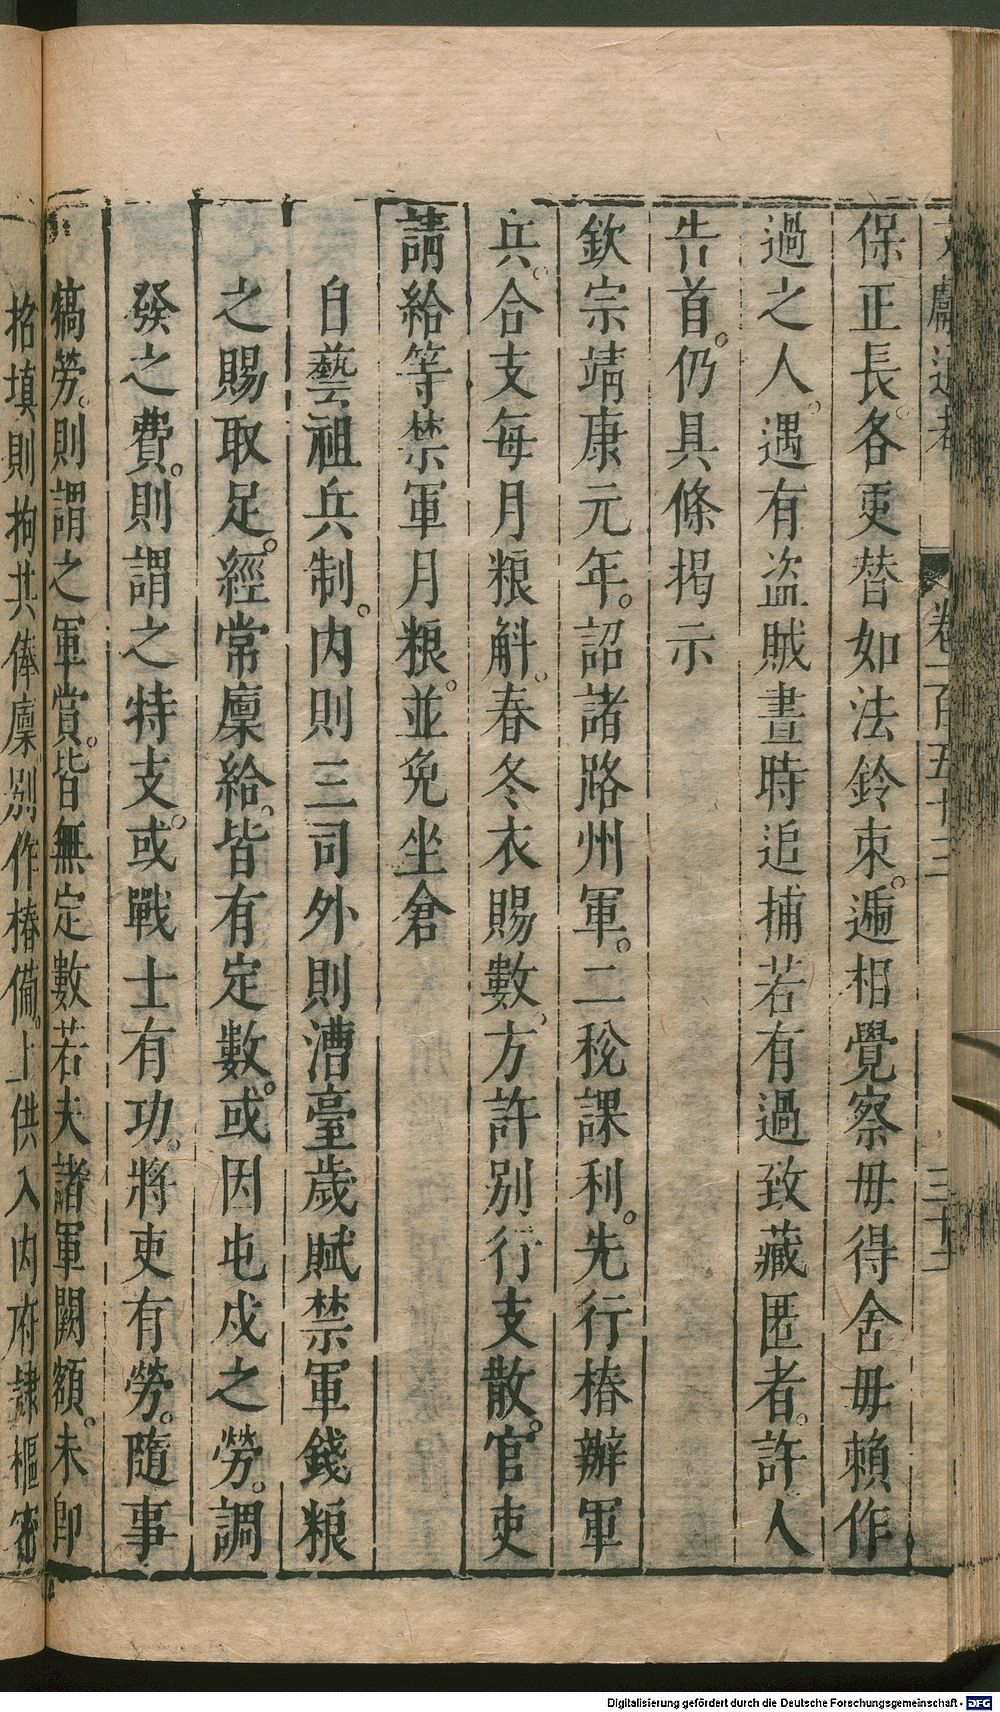 文獻通考 卷一百五十三 三十二
保正長各更替如法鈐束。遞相覺察毋得舍毋賴作
過之人。遇有盜賊晝時追捕若有過致藏匿者。許人
告首。仍具條揭示
欽宗靖康元年。詔諸路州軍。二稅課利。先行樁辦軍
兵。合支每月粮斛。春冬衣賜數。方許別行支散。官吏
請給等禁軍月粮。並免坐倉
自藝祖兵制。内則三司外則漕臺歲賦禁軍錢粮
之賜取足。經常廩給。皆有定數。或因屯戍之勞。調
發之費。則謂之特支。或戰士有功。將吏有勞。隨事
犒勞。則謂之軍賞。皆無定數若夫諸軍闕額。未卽
招填則拘其俸廩别作樁備。上供入内府隷樞密
Digitalisierung gefördert durch die Deutsche Forschungsgemeinschaft - DFG